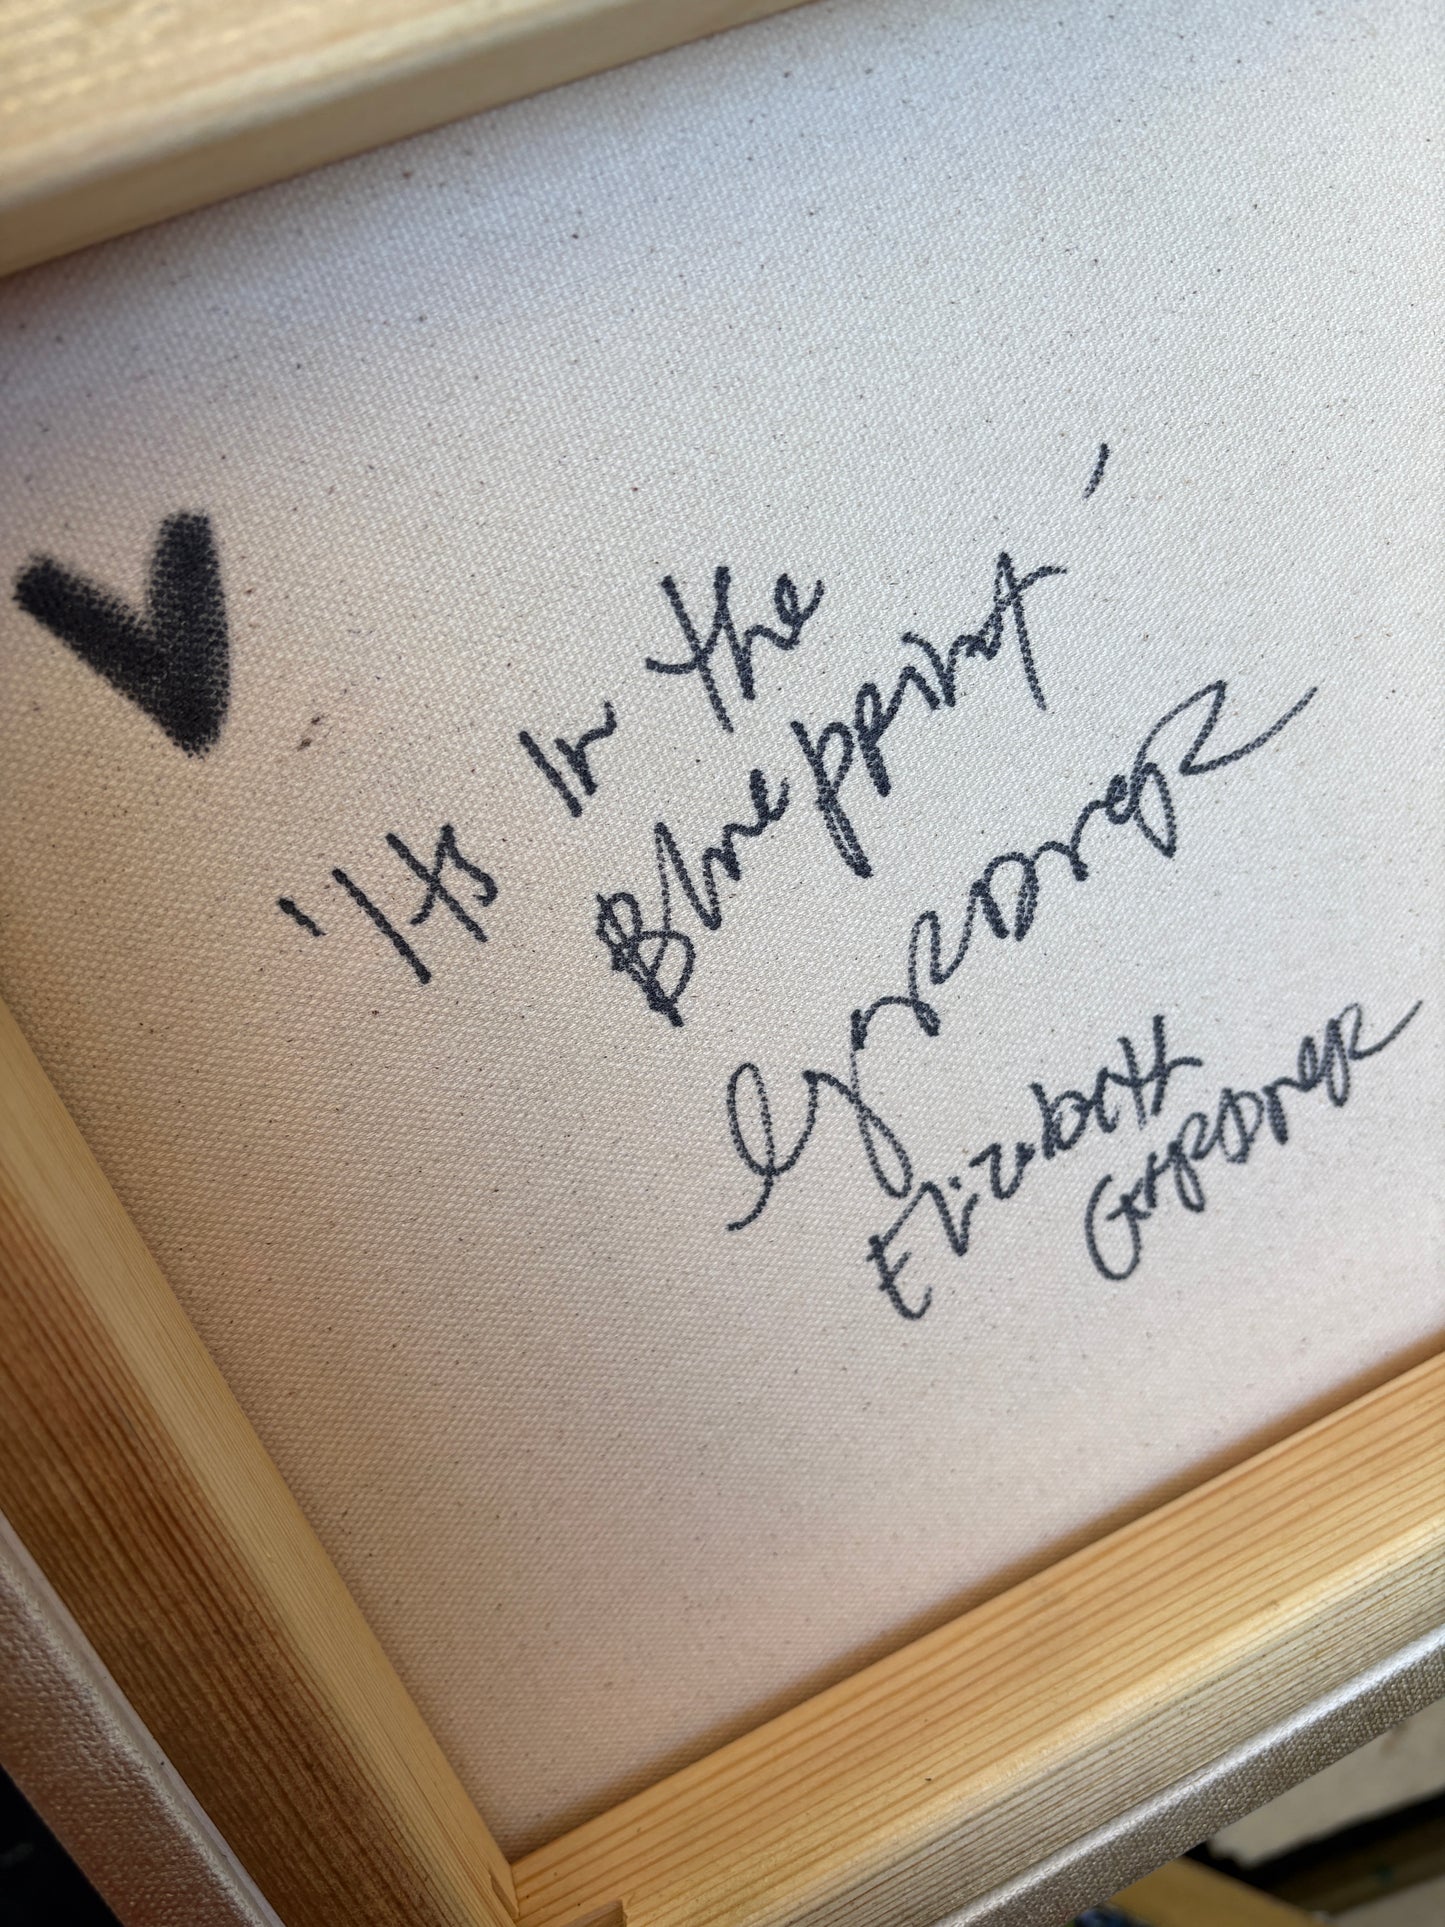 'Its In the
Blueprint'
EGardner
Elizabeth
Gardner